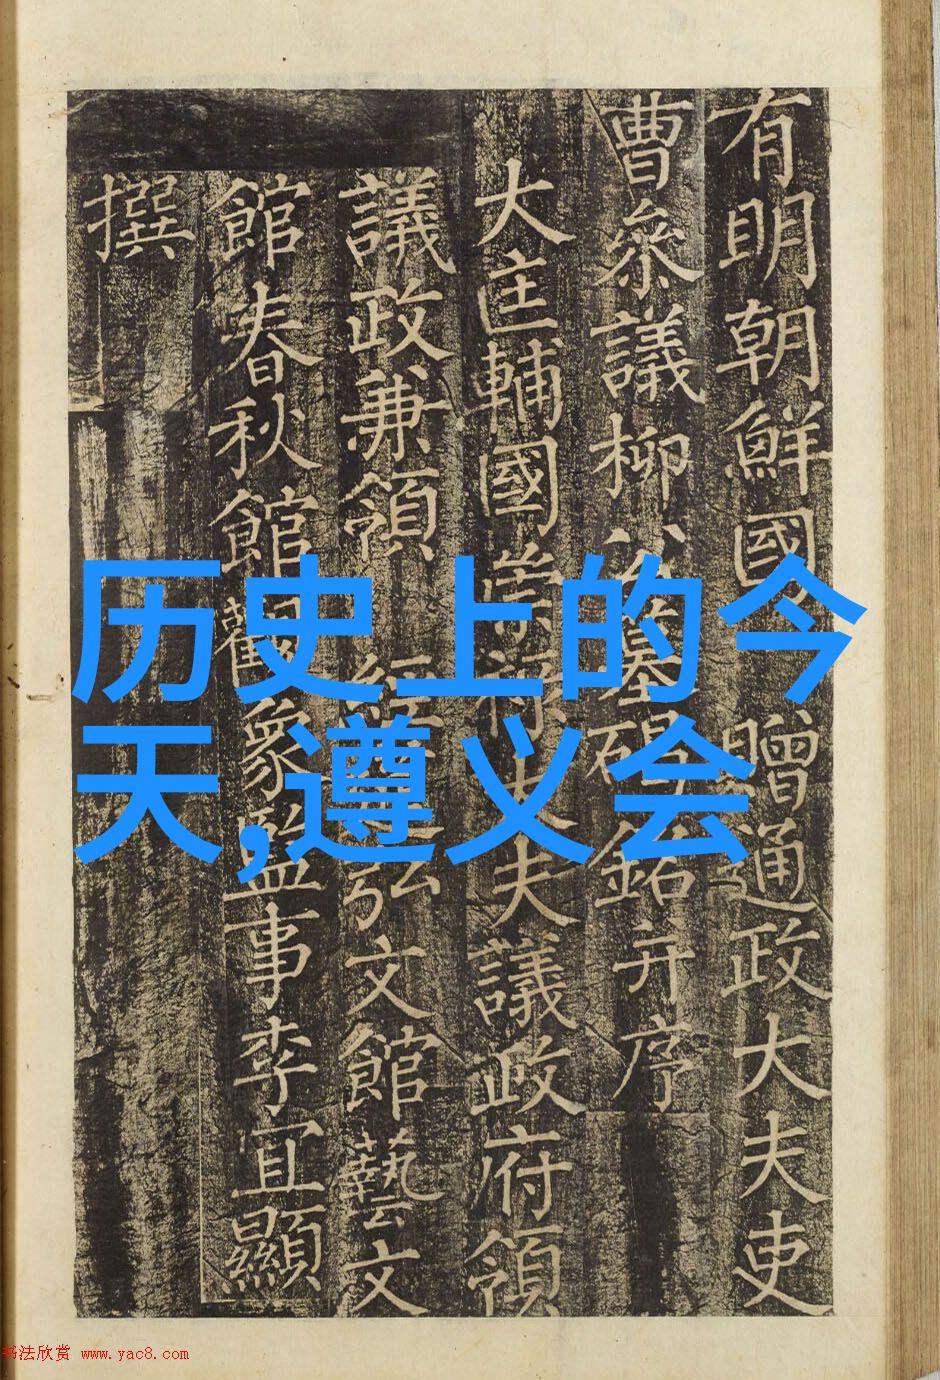 有明朝鮮國 贈通政大夫吏
曹叅議柳公墓碣銘并序
大匡輔國崇祿大夫議政府領
議政兼領 經弘文館藝文
館春秋館觀象監事李宜顯
撰
历史上的今
天,遵义会
书法欣赏 www.yac8.com